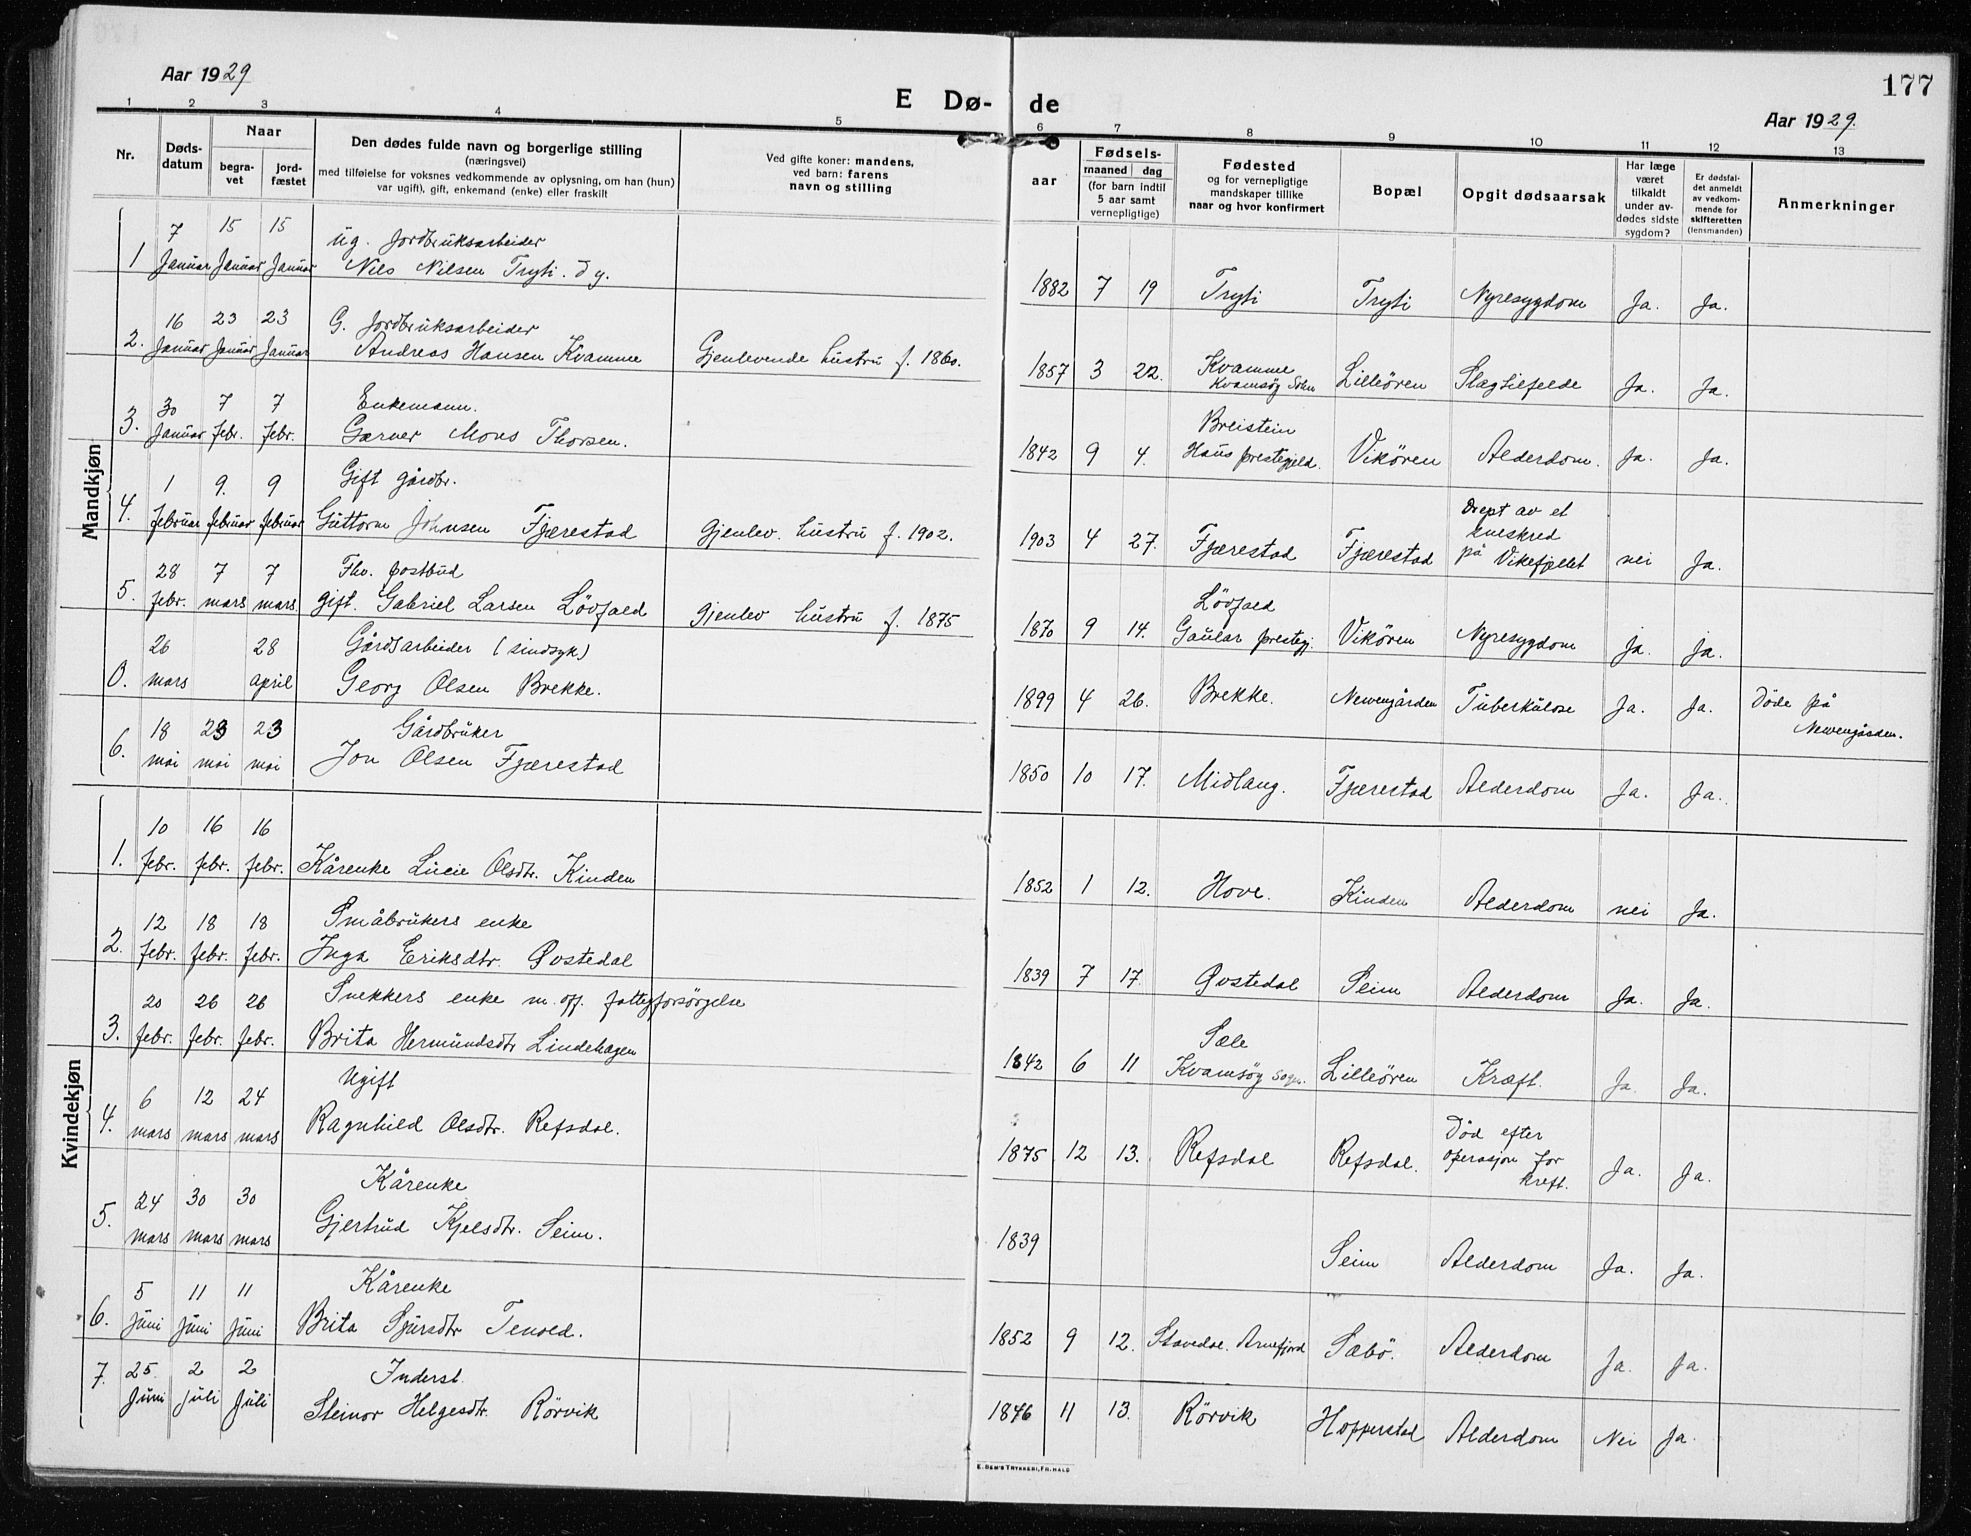 Aar 1929
177
E Dø- de
Aar 1929.
1 2 3 4 5 6 7 8 9 10 11 12 13
Nr.
Døds-
datum
Naar
begra-
vet
jord-
fæstet
Den dødes fulde navn og borgerlige stilling
(næringsvei)
med tilføielse for voksnes vedkommende av oplysning, om han (hun)
var ugift), gift, enkemand (enke) eller fraskilt
Ved gifte koner: mandens,
ved barn: farens
navn og stilling
aar
Fødsels-
maaned dag
(for barn indtil
5 aar samt
vernepligtige)
Fødested
og for vernepligtige
mandskaper tillike
naar og hvor konfirmert
Bopæl
Opgit dødsaarsak
Har læge
været
tilkaldt
under av-
dødes sidste
sygdom?
Er dødsfal-
det anmeldt
av vedkom-
mende for
skifteretten
(lensmanden)
Anmerkninger
Mandkjøn
7 15 15 ug. Jordbruksarbeider
1 Januar Januar Januar Nils Nilsen Tryti. d y. 1882 7 19 Tryti Tryti Nyresygdom Ja. Ja.
16 23 23 G. Jordbruksarbeider
2. Januar Januar Januar Andreas Hansen Kvamme Gjenlevende hustru f. 1860. 1857 3 22. Kvamme Lilleören Slagtilfelde Ja. Ja.
Kvamsøy Sokn
30 7 7 Enkemann. Breistein
3. Januar febr. febr. Garver Mons Thorsen. 1842 9 4. Haus prestegjeld. Vikören Alderdom. Ja. Ja.
1 9. 9 Gift gårdbr. Drept av et
4. februar februar februar Guttorm Johnsen Fjærestad Gjenlev. hustru f. 1902. 1903 4 27. Fjærestad Fjærestad sneskred
på Vikefjellet nei Ja.
28 7 7 Fhv. postbud Lövfald
5. febr. mars mars. gift. Gabriel Larsen Lövfald Gjenlev hustru f. 1875 1870 9 14. Gaular prestegj. Vikören Nyresygdom ja. ja.
26 28 Gårdsarbeider (sindsyk)
0. mars april Georg Olsen Brekke. 1899 4 26. Brekke. Nevengården Tuberkulose Ja. Ja. Døde på
Nevengården.
18 23 23 Gårdbruker
6. mai mai mai Jon Olsen Fjærestad 1850 10 17. Midlang. Fjærestad Alderdom Ja. Ja.
Kvindekjøn
10 16 16
1. febr. febr. febr. Kårenke Lucie Olsdtr. Kinden 1852 1 12. Hove. Kinden Alderdom nei Ja.
12 18 18 Småbrukers enke
2. febr. febr. febr. Inga Eriksdtr. Øvstedal 1839 7 17. Øvstedal Seim Alderdom Ja. Ja.
20 26 26 Snekkers enke m. off. fattigforsørgelse Sæle
3. febr. febr. febr. Brita Hermundsdtr Lindehagen 1842 6 11 Kvamsöy Sogn. Lilleören Kræft. Ja. Ja.
6 12 24 Ugift Död efter
4. mars mars mars Ragnhild Olsdtr. Refsdal. 1875 12 13. Refsdal Refsdal. operasjon for
kreft. Ja. Ja.
24 30 30 Kårenke
5. mars mars mars Gjertrud Kjelsdtr. Seim. 1839 Seim Alderdom Ja. Ja.
5 11 11 Kårenke
6. juni juni juni Brita Sjursdtr Tenold. 1852 9 12. Stavedal. Arnefjord Sæbö. Alderdom Ja. Ja.
25. 2 2 Inderst.
7. Juni juli Juli Steinor Helgesdtr. Rörvik 1846 11 13. Rörvik Hopperstad Alderdom Nei Ja.
E. SEM'S TRYKKERI, FR.HALD